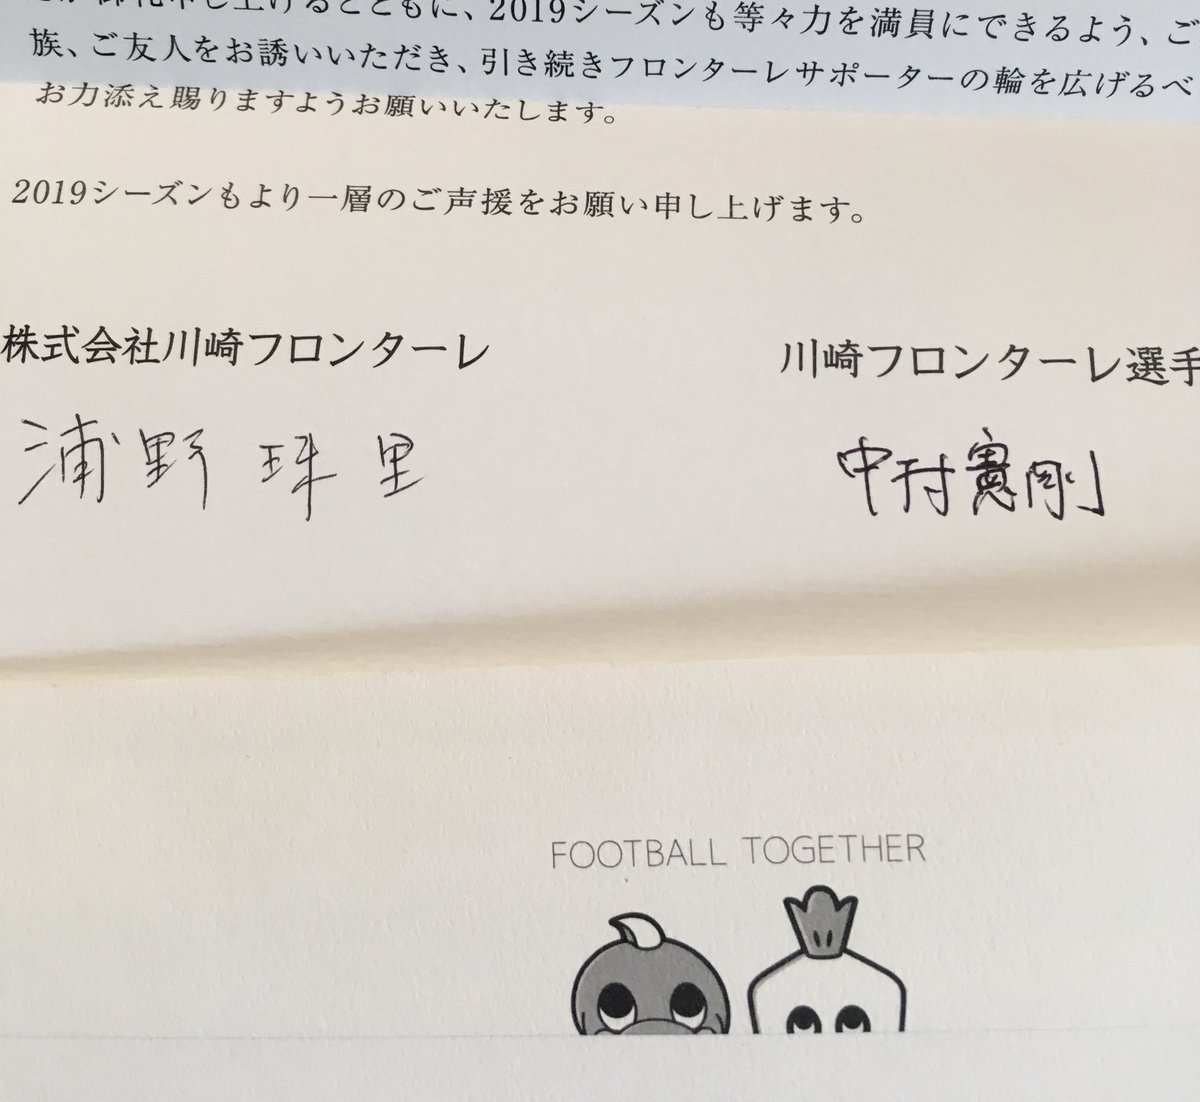 2019シーズンも等々力を満員にできるよう、ご
族、ご友人をお誘いいただき、引き続きフロンターレサポーターの輪を広げるべ
お力添え賜りますようお願いいたします。
2019シーズンもより一層のご声援をお願い申し上げます。
株式会社川崎フロンターレ
浦野珠里
川崎フロンターレ選手
中村憲剛
FOOTBALL TOGETHER